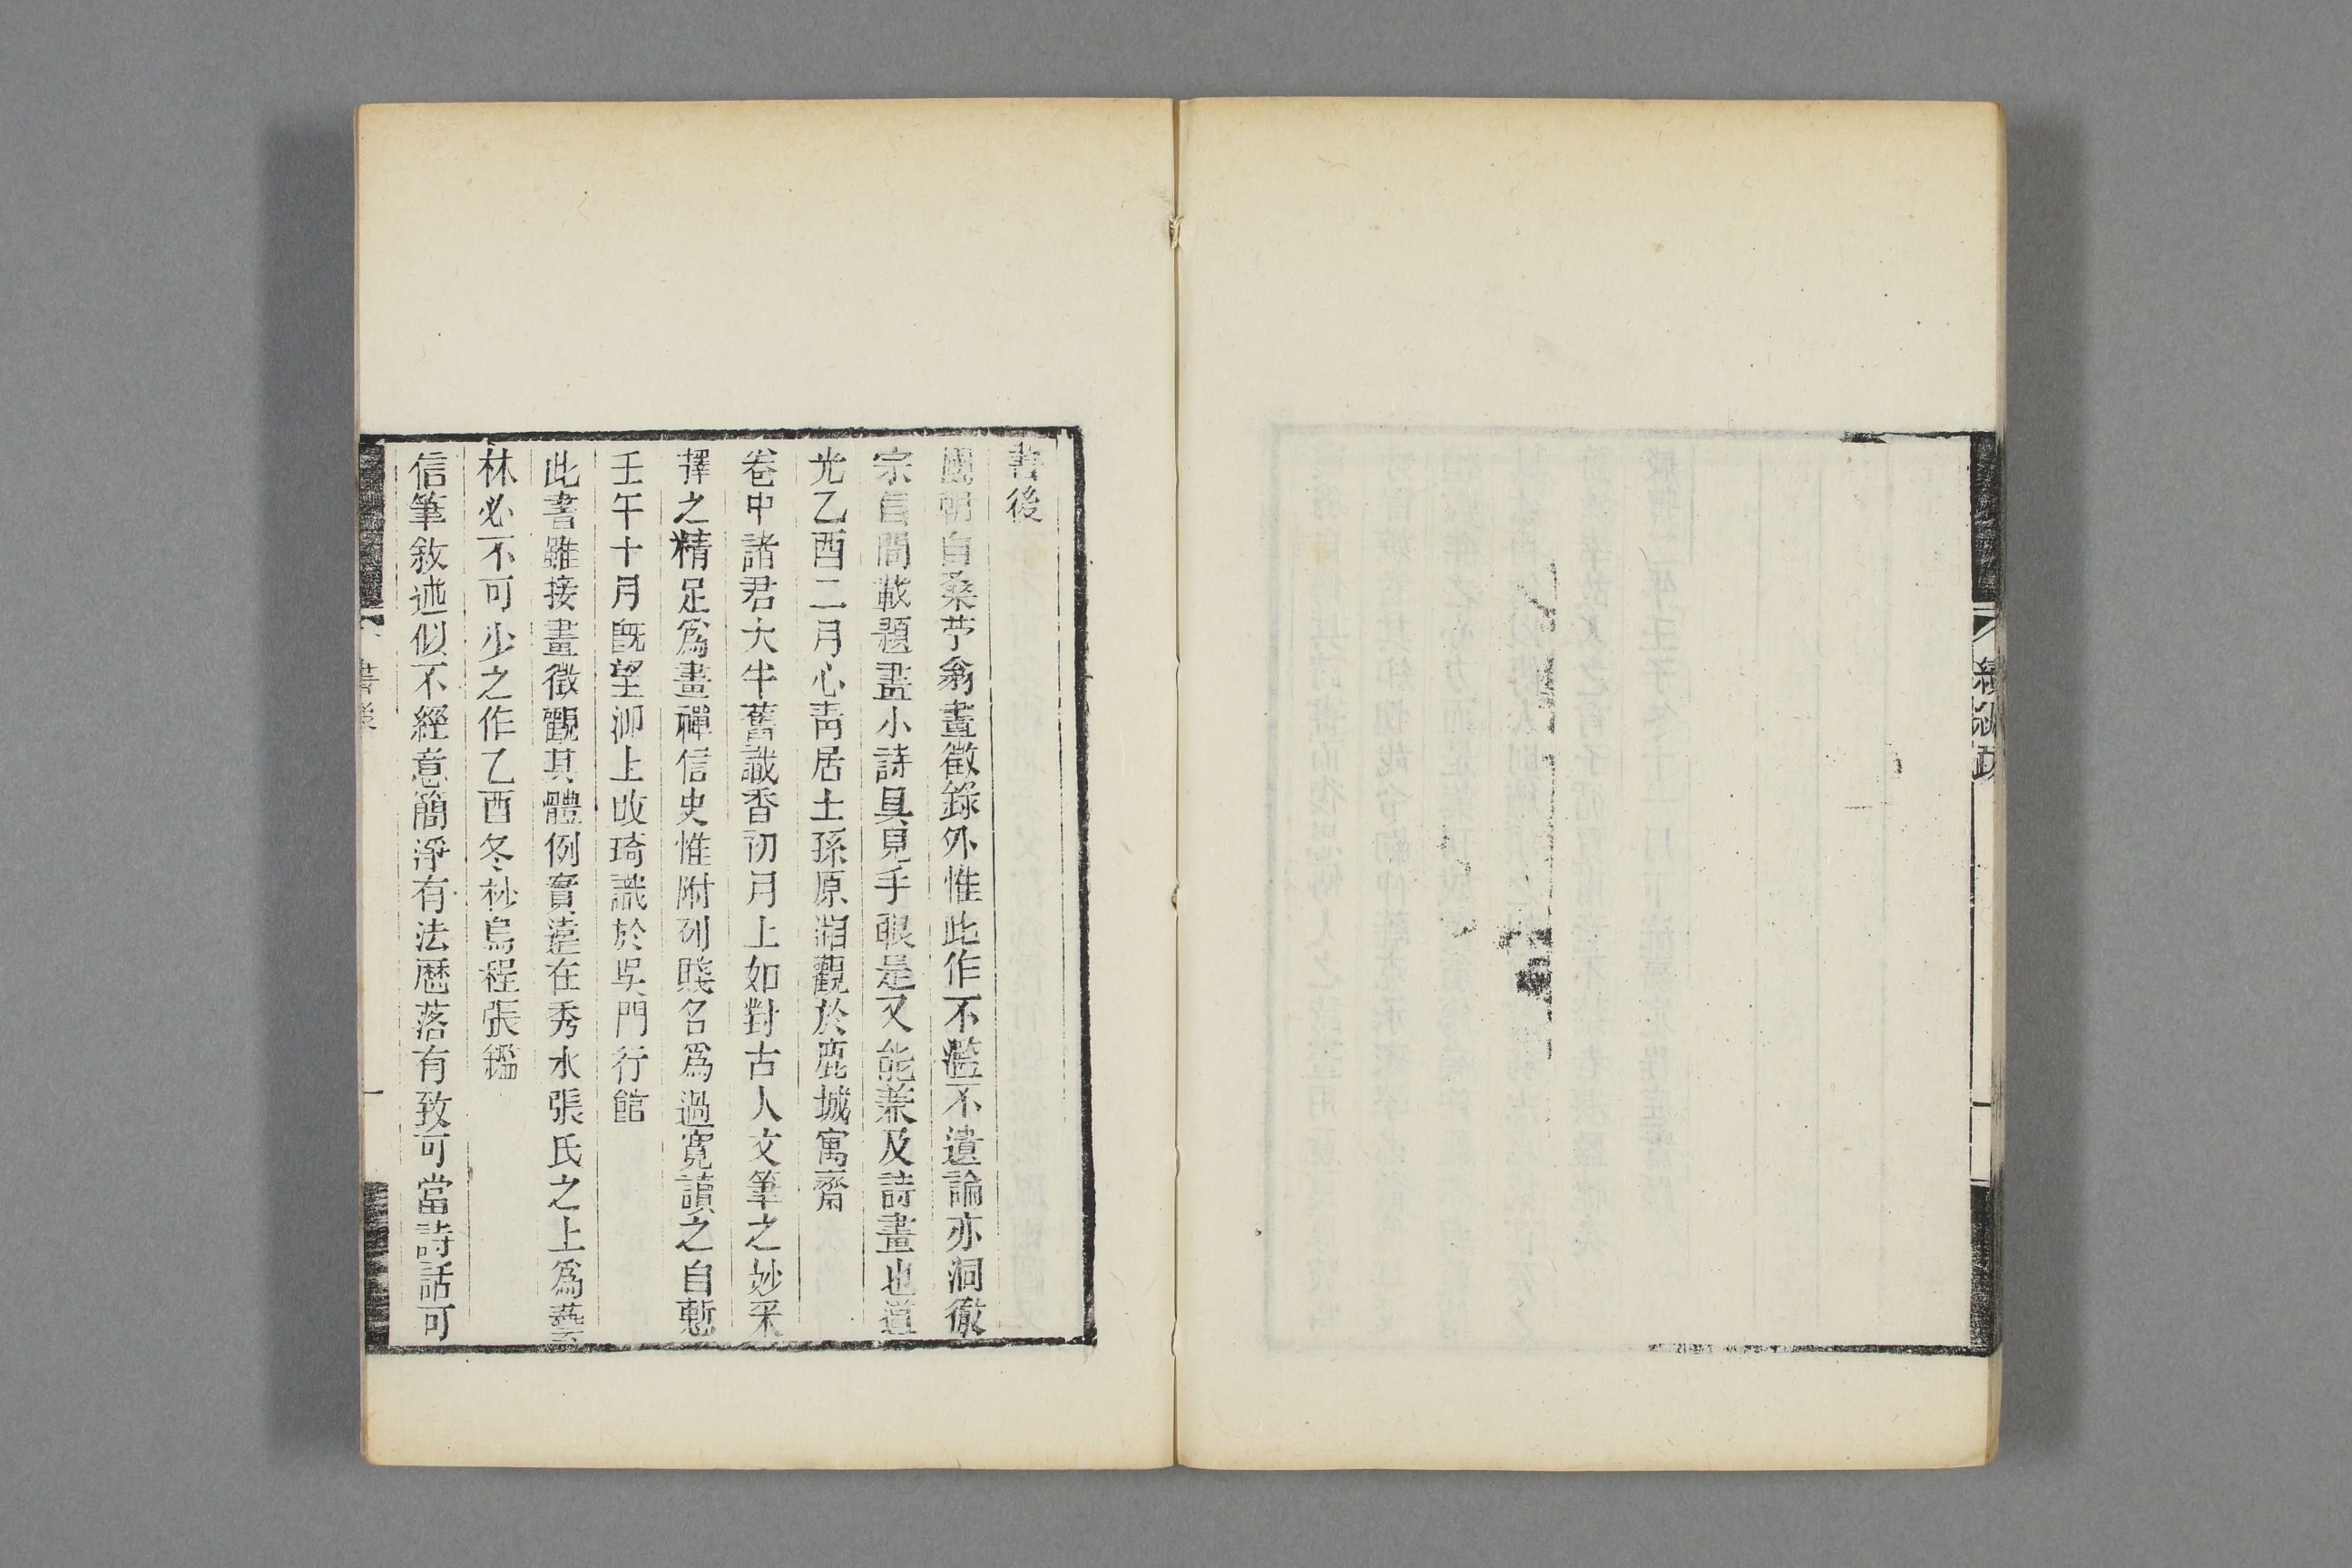 續緒跋
一
書後
國朝自桑苧翁畫徵錄外惟此作不濫不遺論亦洞徹
宗旨間載題畫小詩具見手眼是又能兼及詩畫也道
光乙酉二月心青居士孫原湘觀於鹿城寓齋
卷中諸君大半舊識香初月上如對古人文筆之妙采
擇之精足爲畫禪信史惟附列賤名爲過寬讀之自慙
壬午十月旣望泖上改琦識於吳門行館
此書雖接畫徵觀其體例實遠在秀水張氏之上爲藝
林必不可少之作乙酉冬杪烏程張鑑
信筆敘述似不經意簡淨有法歷落有致可當詩話可
書後
一